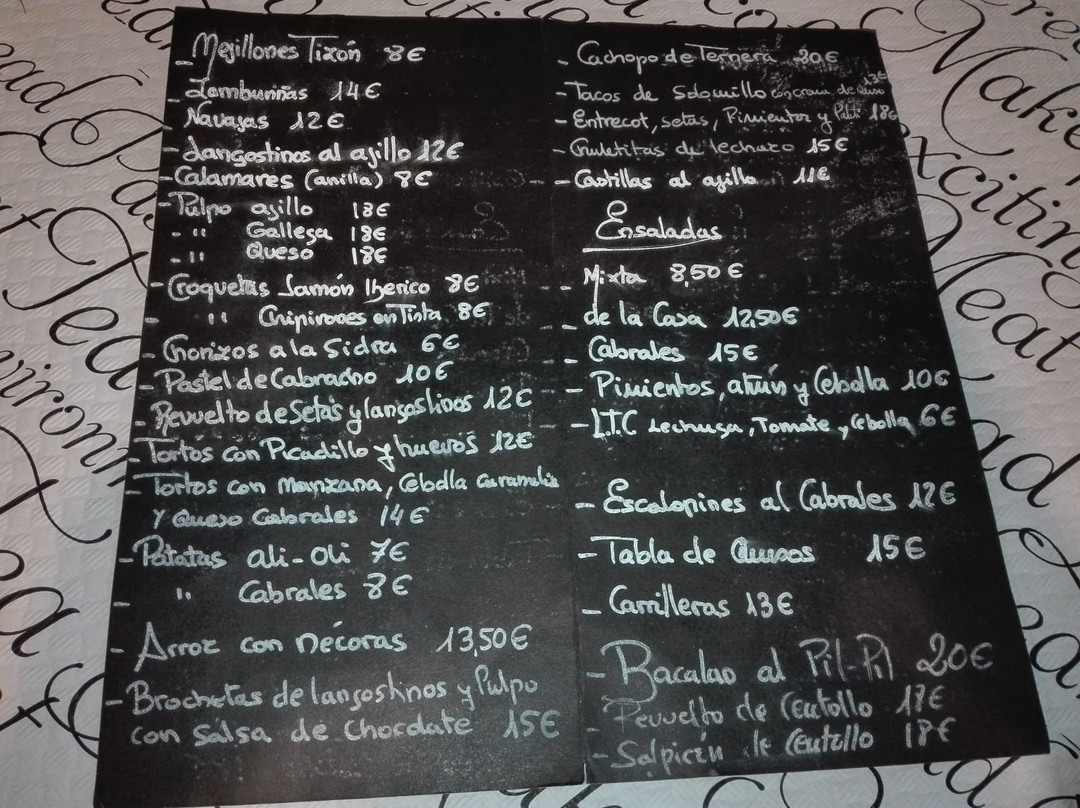 - Mejillones Tixón 8€
- Zamburiñas 14€
- Navajas 12€
- Langostinos al ajillo 12€
- Calamares (anilla) 8€
- Pulpo ajillo 18€
- " Gallega 18€
- " Queso 18€
- Croquetas Jamón Iberico 8€
- " Chipirones en Tinta 8€
- Chorizos a la Sidra 6€
- Pastel de Cabracho 10€
- Revuelto de Setas y langostinos 12€
- Tortos con Picadillo y huevos 12€
- Tortos con manzana, Cebolla caramelis
y Queso Cabrales 14€
- Patatas ali-oli 7€
- " Cabrales 8€
- Arroz con nécoras 13,50€
- Brochetas de langostinos y Pulpo
con salsa de chocolate 15€
- Cachopo de Ternera 20€
- Tacos de Solomillo con crema de Queso
- Entrecot, setas, Pimientos y Patat 18€
- Chuletitas de lechazo 15€
- Costillas al ajillo 11€
Ensaladas
- Mixta 8,50€
- de la Casa 12,50€
- Cabrales 15€
- Pimientos, atún y Cebolla 10€
- L.T.C Lechuga, Tomate y Cebolla 6€
- Escalopines al Cabrales 12€
- Tabla de Quesos 15€
- Carrilleras 13€
- Bacalao al Pil-Pil 20€
- Revuelto de Centollo
- Salpicón de Centollo 18€